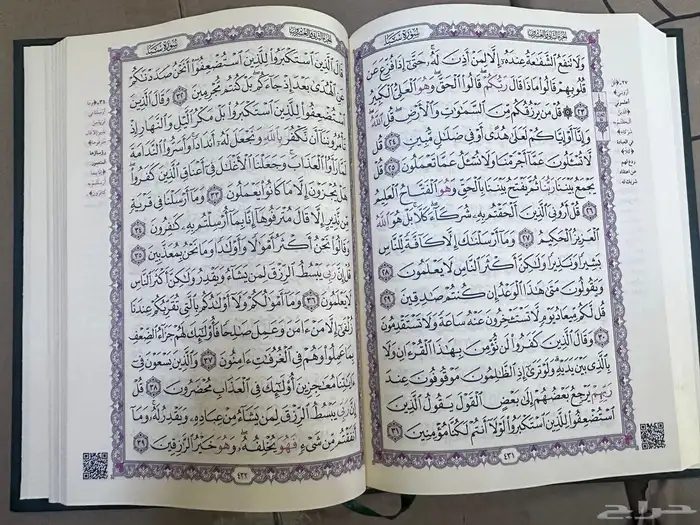 سُورَةُ سَبَإٍ
الجزء الثاني والعشرون
وَلَا تَنفَعُ ٱلشَّفَٰعَةُ عِندَهُۥٓ إِلَّا لِمَنْ أَذِنَ لَهُۥۚ حَتَّىٰٓ إِذَا فُزِّعَ عَن
قُلُوبِهِمْ قَالُوا۟ مَاذَا قَالَ رَبُّكُمْۖ قَالُوا۟ ٱلْحَقَّۖ وَهُوَ ٱلْعَلِىُّ ٱلْكَبِيرُ
٢٣ ۞ قُلْ مَن يَرْزُقُكُم مِّنَ ٱلسَّمَٰوَٰتِ وَٱلْأَرْضِۖ قُلِ ٱللَّهُۖ
وَإِنَّآ أَوْ إِيَّاكُمْ لَعَلَىٰ هُدًى أَوْ فِى ضَلَٰلٍ مُّبِينٍ ٢٤ قُل
لَّا تُسْـَٔلُونَ عَمَّآ أَجْرَمْنَا وَلَا نُسْـَٔلُ عَمَّا تَعْمَلُونَ ٢٥ قُلْ
يَجْمَعُ بَيْنَنَا رَبُّنَا ثُمَّ يَفْتَحُ بَيْنَنَا بِٱلْحَقِّ وَهُوَ ٱلْفَتَّاحُ ٱلْعَلِيمُ
٢٦ قُلْ أَرُونِىَ ٱلَّذِينَ أَلْحَقْتُم بِهِۦ شُرَكَآءَۖ كَلَّاۚ بَلْ هُوَ ٱللَّهُ
ٱلْعَزِيزُ ٱلْحَكِيمُ ٢٧ وَمَآ أَرْسَلْنَٰكَ إِلَّا كَآفَّةً لِّلنَّاسِ
بَشِيرًا وَنَذِيرًا وَلَٰكِنَّ أَكْثَرَ ٱلنَّاسِ لَا يَعْلَمُونَ ٢٨
وَيَقُولُونَ مَتَىٰ هَٰذَا ٱلْوَعْدُ إِن كُنتُمْ صَٰدِقِينَ ٢٩
قُل لَّكُم مِّيعَادُ يَوْمٍ لَّا تَسْتَـْٔخِرُونَ عَنْهُ سَاعَةً وَلَا تَسْتَقْدِمُونَ
٣٠ وَقَالَ ٱلَّذِينَ كَفَرُوا۟ لَن نُّؤْمِنَ بِهَٰذَا ٱلْقُرْءَانِ وَلَا
بِٱلَّذِى بَيْنَ يَدَيْهِۗ وَلَوْ تَرَىٰٓ إِذِ ٱلظَّٰلِمُونَ مَوْقُوفُونَ عِندَ
رَبِّهِمْ يَرْجِعُ بَعْضُهُمْ إِلَىٰ بَعْضٍ ٱلْقَوْلَ يَقُولُ ٱلَّذِينَ
ٱسْتُضْعِفُوا۟ لِلَّذِينَ ٱسْتَكْبَرُوا۟ لَوْلَآ أَنتُمْ لَكُنَّا مُؤْمِنِينَ ٣١
٤٣١
الجزء الثاني والعشرون
سُورَةُ سَبَإٍ
قَالَ ٱلَّذِينَ ٱسْتَكْبَرُوا۟ لِلَّذِينَ ٱسْتُضْعِفُوٓا۟ أَنَحْنُ صَدَدْنَٰكُمْ
عَنِ ٱلْهُدَىٰ بَعْدَ إِذْ جَآءَكُمۖ بَلْ كُنتُم مُّجْرِمِينَ ٣٢ وَقَالَ ٱلَّذِينَ
ٱسْتُضْعِفُوا۟ لِلَّذِينَ ٱسْتَكْبَرُوا۟ بَلْ مَكْرُ ٱلَّيْلِ وَٱلنَّهَارِ إِذْ
تَأْمُرُونَنَآ أَن نَّكْفُرَ بِٱللَّهِ وَنَجْعَلَ لَهُۥٓ أَندَادًاۚ وَأَسَرُّوا۟ ٱلنَّدَامَةَ
لَمَّا رَأَوُا۟ ٱلْعَذَابَ وَجَعَلْنَا ٱلْأَغْلَٰلَ فِىٓ أَعْنَاقِ ٱلَّذِينَ كَفَرُوا۟ۚ
هَلْ يُجْزَوْنَ إِلَّا مَا كَانُوا۟ يَعْمَلُونَ ٣٣ وَمَآ أَرْسَلْنَا فِى قَرْيَةٍ
مِّن نَّذِيرٍ إِلَّا قَالَ مُتْرَفُوهَآ إِنَّا بِمَآ أُرْسِلْتُم بِهِۦ كَٰفِرُونَ ٣٤
وَقَالُوا۟ نَحْنُ أَكْثَرُ أَمْوَٰلًا وَأَوْلَٰدًا وَمَا نَحْنُ بِمُعَذَّبِينَ ٣٥
قُلْ إِنَّ رَبِّى يَبْسُطُ ٱلرِّزْقَ لِمَن يَشَآءُ وَيَقْدِرُ وَلَٰكِنَّ أَكْثَرَ ٱلنَّاسِ
لَا يَعْلَمُونَ ٣٦ وَمَآ أَمْوَٰلُكُمْ وَلَآ أَوْلَٰدُكُم بِٱلَّتِى تُقَرِّبُكُمْ عِندَنَا
زُلْفَىٰٓ إِلَّا مَنْ ءَامَنَ وَعَمِلَ صَٰلِحًا فَأُو۟لَٰٓئِكَ لَهُمْ جَزَآءُ ٱلضِّعْفِ
بِمَا عَمِلُوا۟ وَهُمْ فِى ٱلْغُرُفَٰتِ ءَامِنُونَ ٣٧ وَٱلَّذِينَ يَسْعَوْنَ فِىٓ
ءَايَٰتِنَا مُعَٰجِزِينَ أُو۟لَٰٓئِكَ فِى ٱلْعَذَابِ مُحْضَرُونَ ٣٨ قُلْ
إِنَّ رَبِّى يَبْسُطُ ٱلرِّزْقَ لِمَن يَشَآءُ مِنْ عِبَادِهِۦ وَيَقْدِرُ لَهُۥۚ وَمَآ
أَنفَقْتُم مِّن شَىْءٍ فَهُوَ يُخْلِفُهُۥۖ وَهُوَ خَيْرُ ٱلرَّٰزِقِينَ ٣٩
٤٣٢
حراج